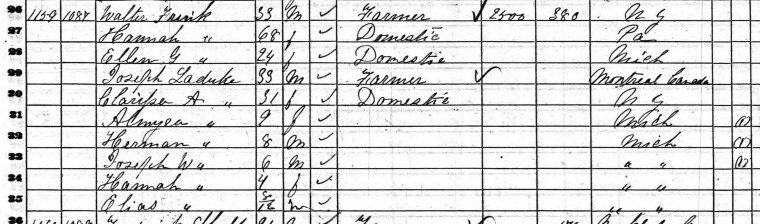 26 1159 1087 Walter Frink 33 m ✓ Farmer ✓ 2500 380 N Y
27 Hannah " 68 f ✓ Domestic Pa
28 Ellen G " 24 f ✓ Domestic Mich
29 Joseph Laduke 33 m ✓ Farmer ✓ Montreal Canada
30 Clarissa A. " 31 f ✓ Domestic N Y
31 Almyra " 9 f ✓ Mich (1)
32 Herman " 8 m ✓ Mich (1)
33 Joseph W " 6 m ✓ " " (1)
34 Hannah " 4 f ✓ " "
35 Elias " m ✓ " "